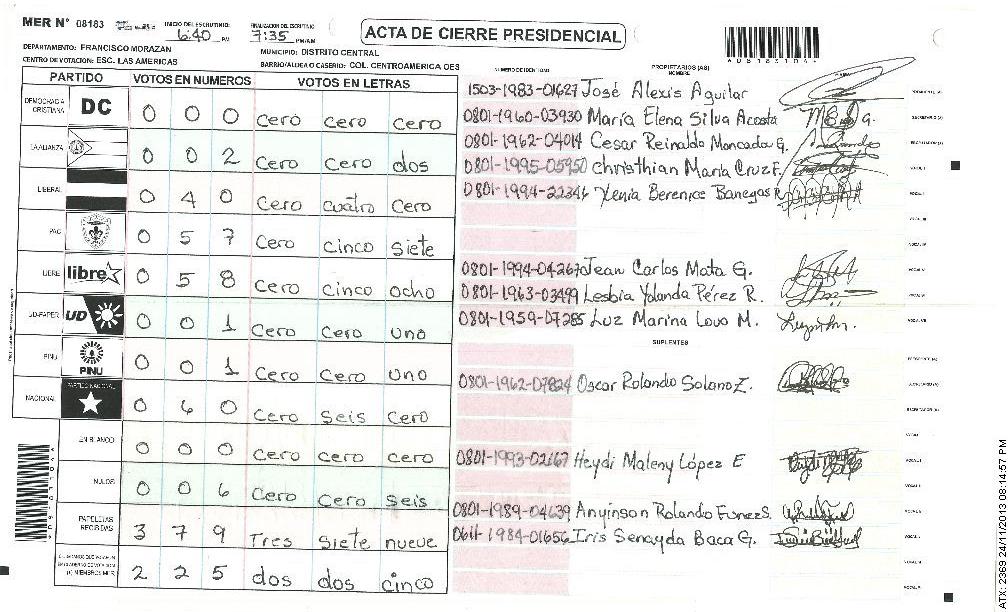 MER N° 08183
INICIO DEL ESCRUTINIO:
6:40 PM
FINALIZACION DEL ESCRUTINIO
7:35 PM/AM
ACTA DE CIERRE PRESIDENCIAL
DEPARTAMENTO: FRANCISCO MORAZAN
MUNICIPIO: DISTRITO CENTRAL
CENTRO DE VOTACION: ESC. LAS AMERICAS
BARRIO/ALDEA O CASERIO: COL. CENTROAMERICA OES
PARTIDO VOTOS EN NUMEROS VOTOS EN LETRAS
DEMOCRACIA CRISTIANA DC 0 0 0 cero cero cero
LA ALIANZA 0 0 2 cero cero dos
LIBERAL 0 4 0 cero cuatro cero
PAC 0 5 7 cero cinco siete
LIBRE libre 0 5 8 cero cinco ocho
UD-FAPER UD 0 0 1 cero cero uno
PINU PINU 0 0 1 cero cero uno
NACIONAL PARTIDO NACIONAL 0 6 0 cero seis cero
EN BLANCO 0 0 0 cero cero cero
NULOS 0 0 6 cero cero seis
PAPELETAS RECIBIDAS 3 7 9 Tres siete nueve
2 2 5 dos dos cinco
NUMERO DE IDENTIDAD PROPIETARIOS (AS)
NOMBRE FIRMA
1503-1983-01627 José Alexis Aguilar
0801-1960-03930 María Elena Silva Acosta
0801-1962-04014 Cesar Reinaldo Moncada G.
0801-1995-05950 Christhian María Cruz F.
0801-1994-22346 Xenia Berenice Banegas R
0801-1994-04267 Jean Carlos Mata G.
0801-1963-03499 Lesbia Yolanda Pérez R.
0801-1959-07285 Luz Marina Lovo M.
SUPLENTES
0801-1962-07824 Oscar Rolando Solano Z.
0801-1993-02667 Heydi Maleny López E
0801-1989-04639 Anyinson Rolando Funez S.
0611-1984-01656 Iris Senayda Baca G.
ATX: 2369 24/11/2013 08:14:57 PM